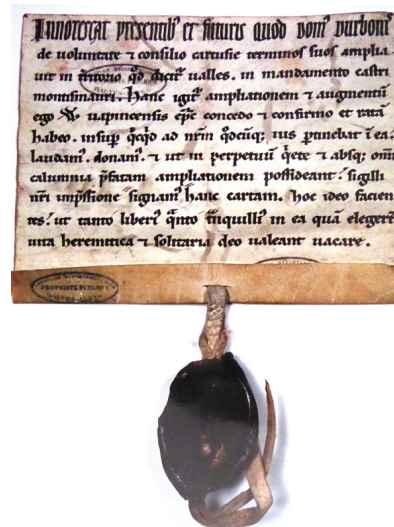 Innotescat presentib' et futuris quod dom' durboni'
de voluntate ⁊ consilio cartusie terminos suos amplia
uit in territorio qd dicit' valles. in mandamento castri
montismauri. hanc igit' amphationem ⁊ augmentū
ego W uapincensis ep̄c concedo ⁊ confirmo et ratā
habeo. insup q̄cqd ad nr̄m q̄ocūq; ius p̄tinebat ī ea;
laudam'. donam'. ⁊ ut in perpetuū q̄ete ⁊ absq; om̄i
calumnia p̄fatam ampliationem possideant; sigilli
nr̄i imp̄ssione signam' hanc cartam. hoc ideo facien
tes; ut tanto liberi' q̄nto t̄nquilli' in ea quā elegerūt
uita heremitica ⁊ solitaria deo ualeant uacare.
PROPRIÉTÉ PUBLIQUE